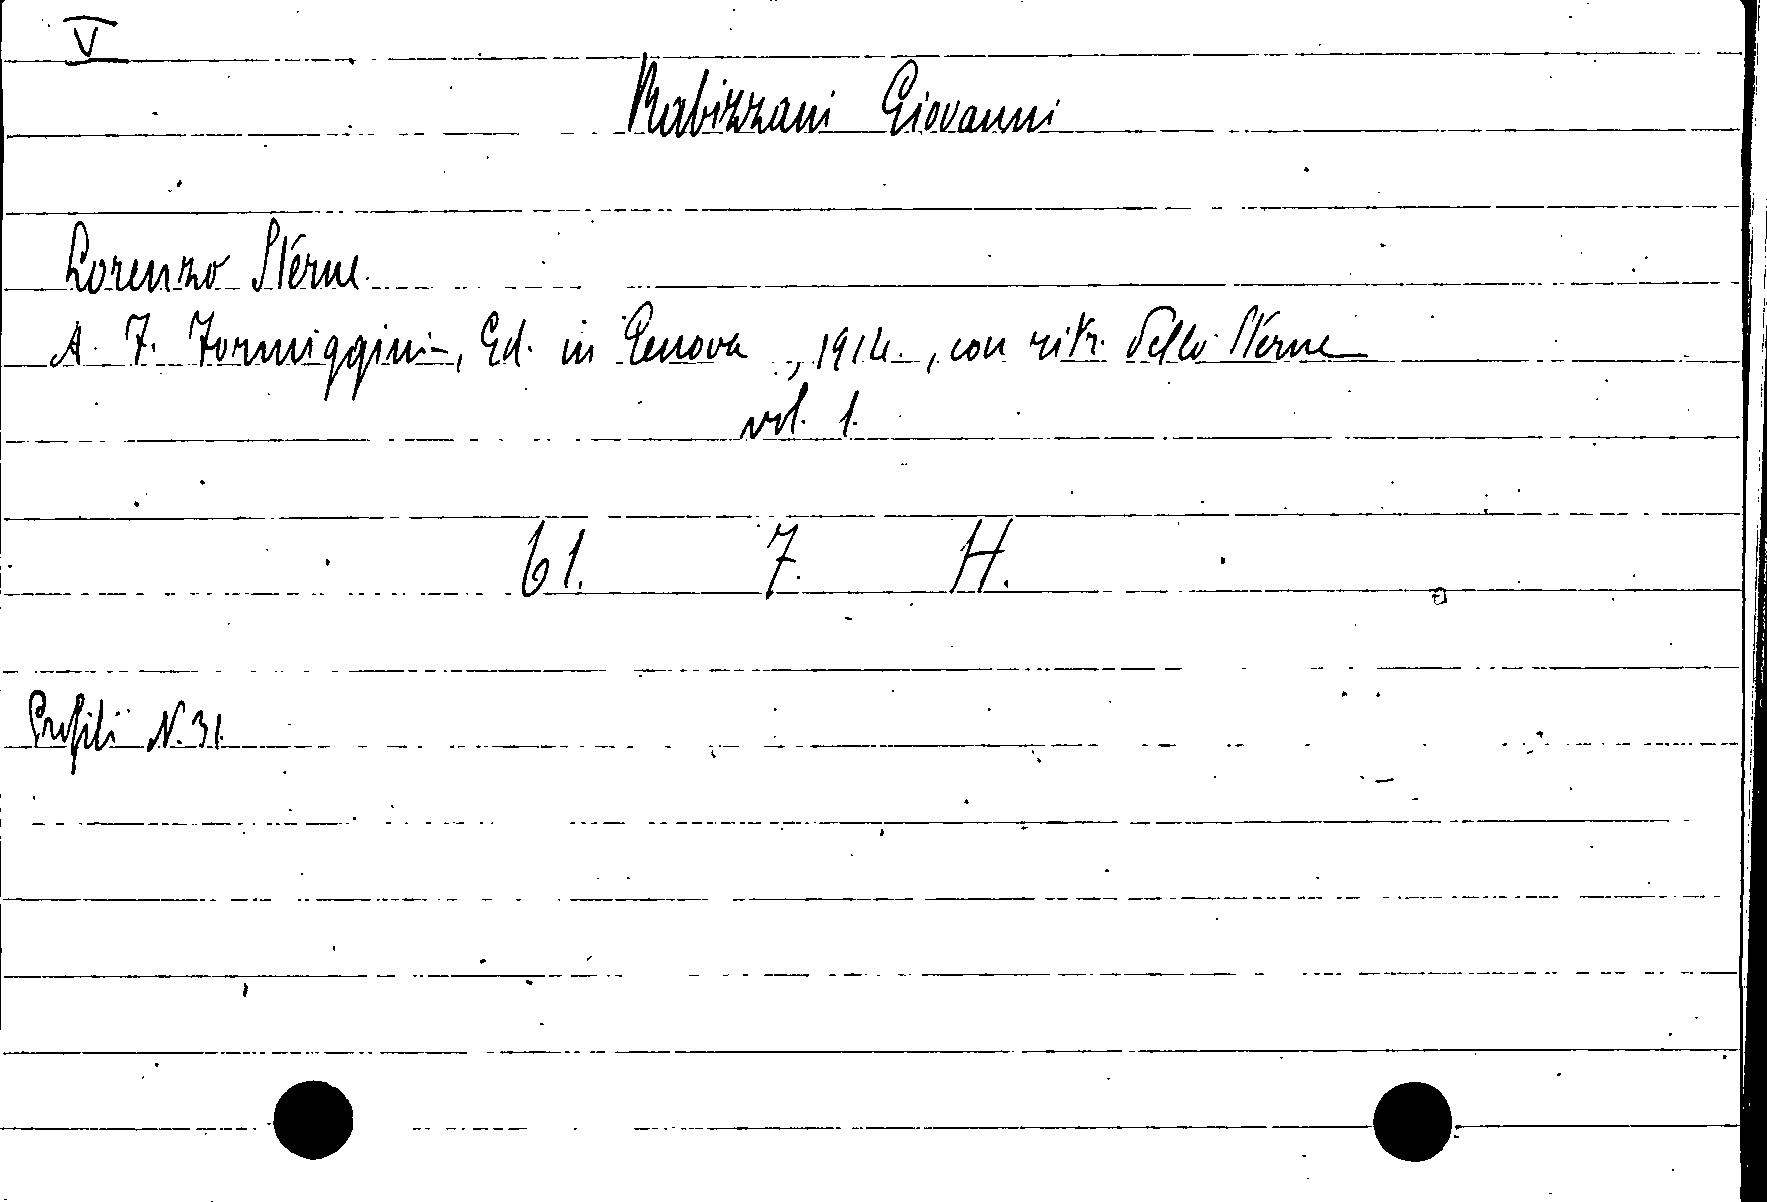 V
Rabizzani Giovanni
Lorenzo Sterne.
A. F. Formiggini, Ed. in Genova, 1914., con ritr. dello Sterne
vol. 1.
61. 7. H.
Profili N. 31.